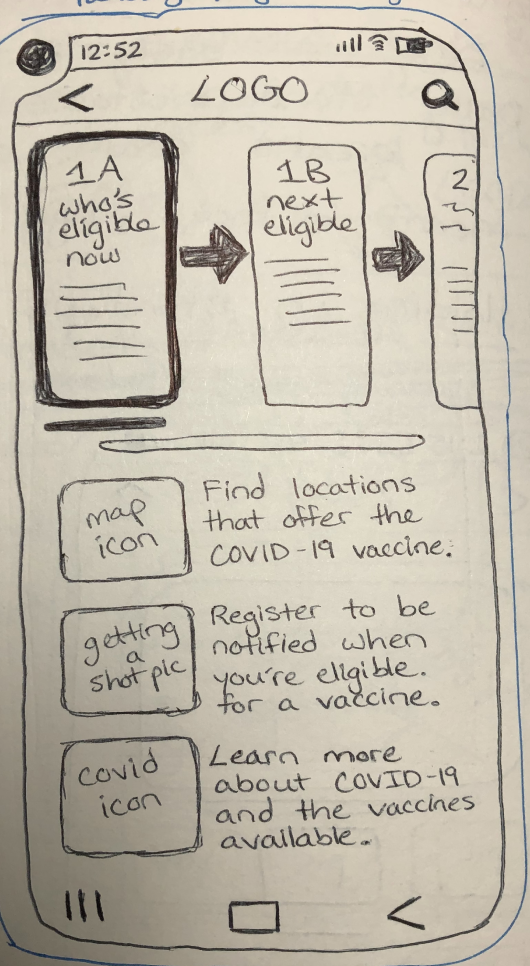 12:52
LOGO
1A
who's
eligible
now
1B
next
eligible
2
map
icon
Find locations
that offer the
COVID-19 vaccine.
getting
a
shot pic
Register to be
notified when
you're eligible.
for a vaccine.
covid
icon
Learn more
about COVID-19
and the vaccines
available.